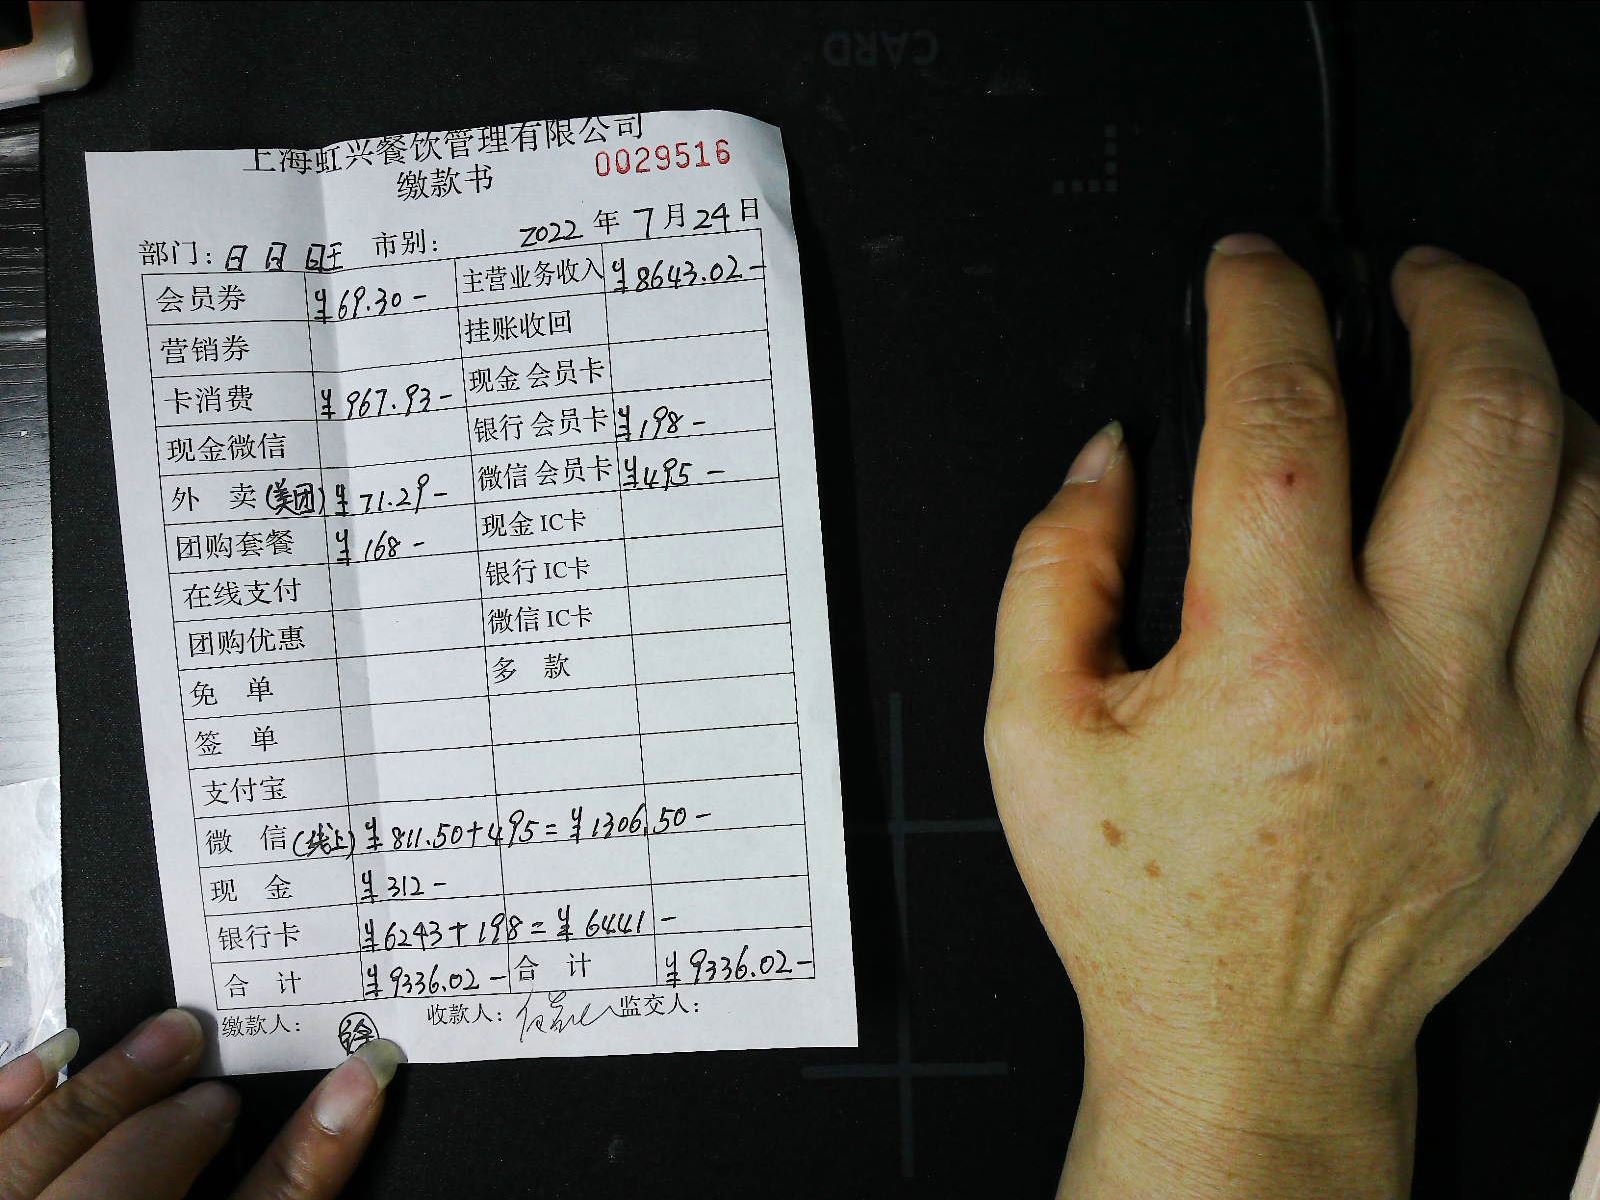 上海虹兴餐饮管理有限公司
缴款书 0029516
部门: 日 日 旺 市别: 2022 年 7 月 24 日
会员券 ¥69.30- 主营业务收入 ¥8643.02-
营销券 挂账收回
卡消费 ¥967.93- 现金 会员卡
现金微信 银行 会员卡 ¥198-
外 卖(美团) ¥71.29- 微信 会员卡 ¥495-
团购套餐 ¥168- 现金 IC卡
在线支付 银行 IC卡
团购优惠 微信 IC卡
免 单 多 款
签 单
支付宝
微 信(线上) ¥811.50+495=¥1306.50-
现 金 ¥312-
银行卡 ¥6243+198=¥6441-
合 计 ¥9336.02- 合 计 ¥9336.02-
缴款人: 徐 收款人: 监交人:
CARD